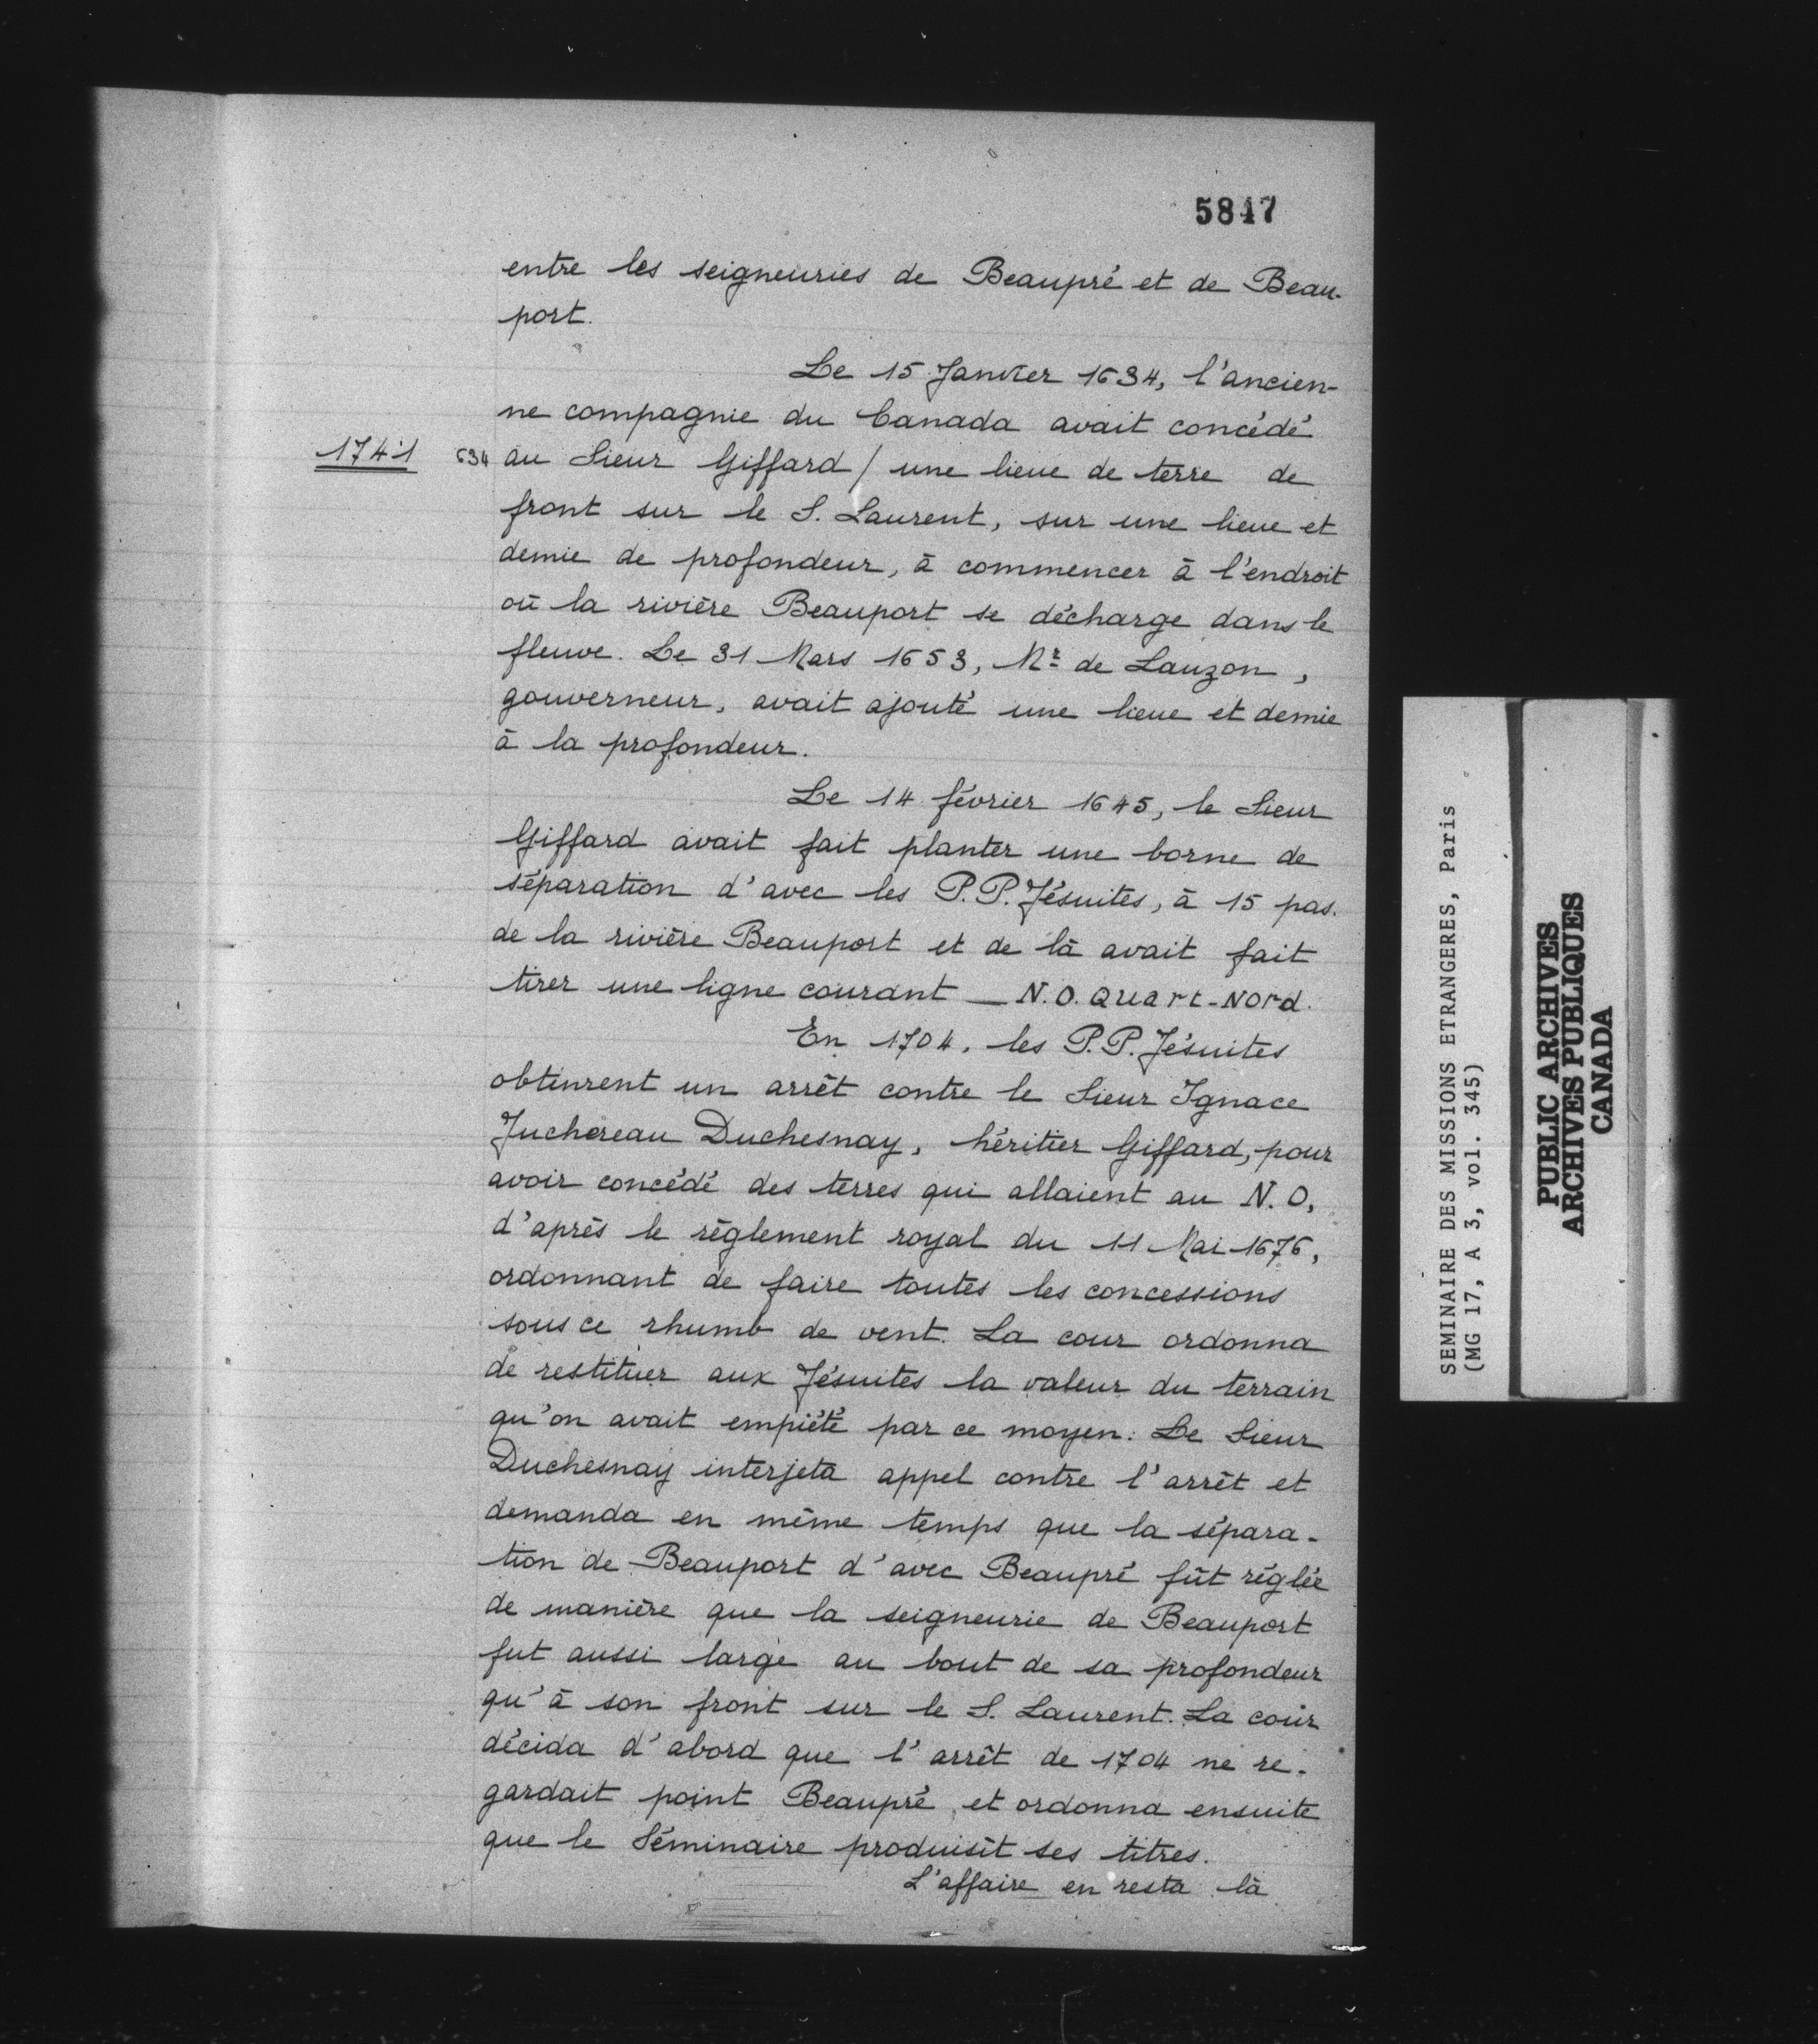 5847
entre les seigneuries de Beaupré et de Beau-
port.
Le 15 Janvier 1634, l'ancien-
ne compagnie du Canada avait concédé
1741 634 au Sieur Giffard / une lieue de terre de
front sur le S. Laurent, sur une lieue et
demie de profondeur, à commencer à l'endroit
où la rivière Beauport se décharge dans le
fleuve. Le 31 Mars 1653, Mr de Lauzon,
gouverneur, avait ajouté une lieue et demie
à la profondeur.
Le 14 février 1645, le Sieur
Giffard avait fait planter une borne de
séparation d'avec les P.P. Jésuites, à 15 pas.
de la rivière Beauport et de là avait fait
tirer une ligne courant _ N.O. Quart-Nord.
En 1704, les P.P. Jésuites
obtinrent un arrêt contre le Sieur Ignace
Juchereau Duchesnay, héritier Giffard, pour
avoir concédé des terres qui allaient au N.O,
d'après le règlement royal du 11 Mai 1676,
ordonnant de faire toutes les concessions
sous ce rhumb de vent. La cour ordonna
de restituer aux Jésuites la valeur du terrain
qu'on avait empiété par ce moyen. Le Sieur
Duchesnay interjeta appel contre l'arrêt et
demanda en même temps que la sépara-
tion de Beauport d'avec Beaupré fût réglée
de manière que la seigneurie de Beauport
fut aussi large au bout de sa profondeur
qu'à son front sur le S. Laurent. La cour
décida d'abord que l'arrêt de 1704 ne re-
gardait point Beaupré, et ordonna ensuite
que le Séminaire produisît ses titres.
L'affaire en resta là
SEMINAIRE DES MISSIONS ETRANGERES, Paris
(MG 17, A 3, vol. 345)
PUBLIC ARCHIVES
ARCHIVES PUBLIQUES
CANADA